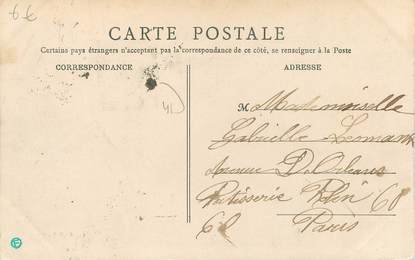 6 €
CARTE POSTALE
Certains pays étrangers n'acceptant pas la correspondance de ce côté, se renseigner à la Poste
CORRESPONDANCE
ADRESSE
41
M Mademoiselle
Gabrielle
Avenue D. Orleans
Patisserie 68
68 Paris